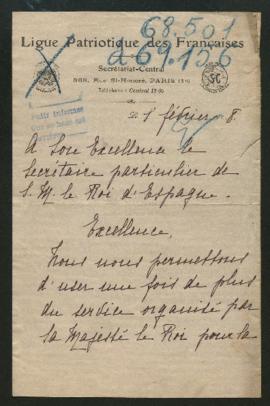 68.501
à 69.156
Ligue Patriotique des Françaises
Secrétariat-Central
368, Rue St-Honoré, PARIS
Téléphone : Central
1 février 8.
A Son Excellence le
Secrétaire particulier de
S. M. le Roi d'Espagne.
Excellence,
Nous nous permettons
d'user une fois de plus
du service organisé par
sa Majesté le Roi pour la